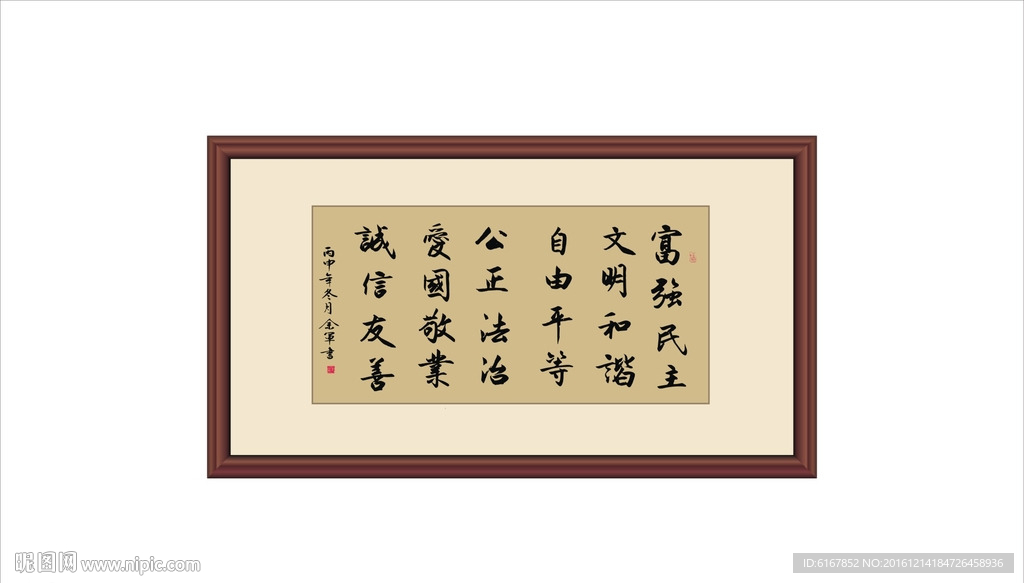 富強民主
文明和諧
自由平等
公正法治
愛國敬業
誠信友善
丙申年冬月余軍書
昵图网 www.nipic.com
ID:6167852 NO:20161214184726458936